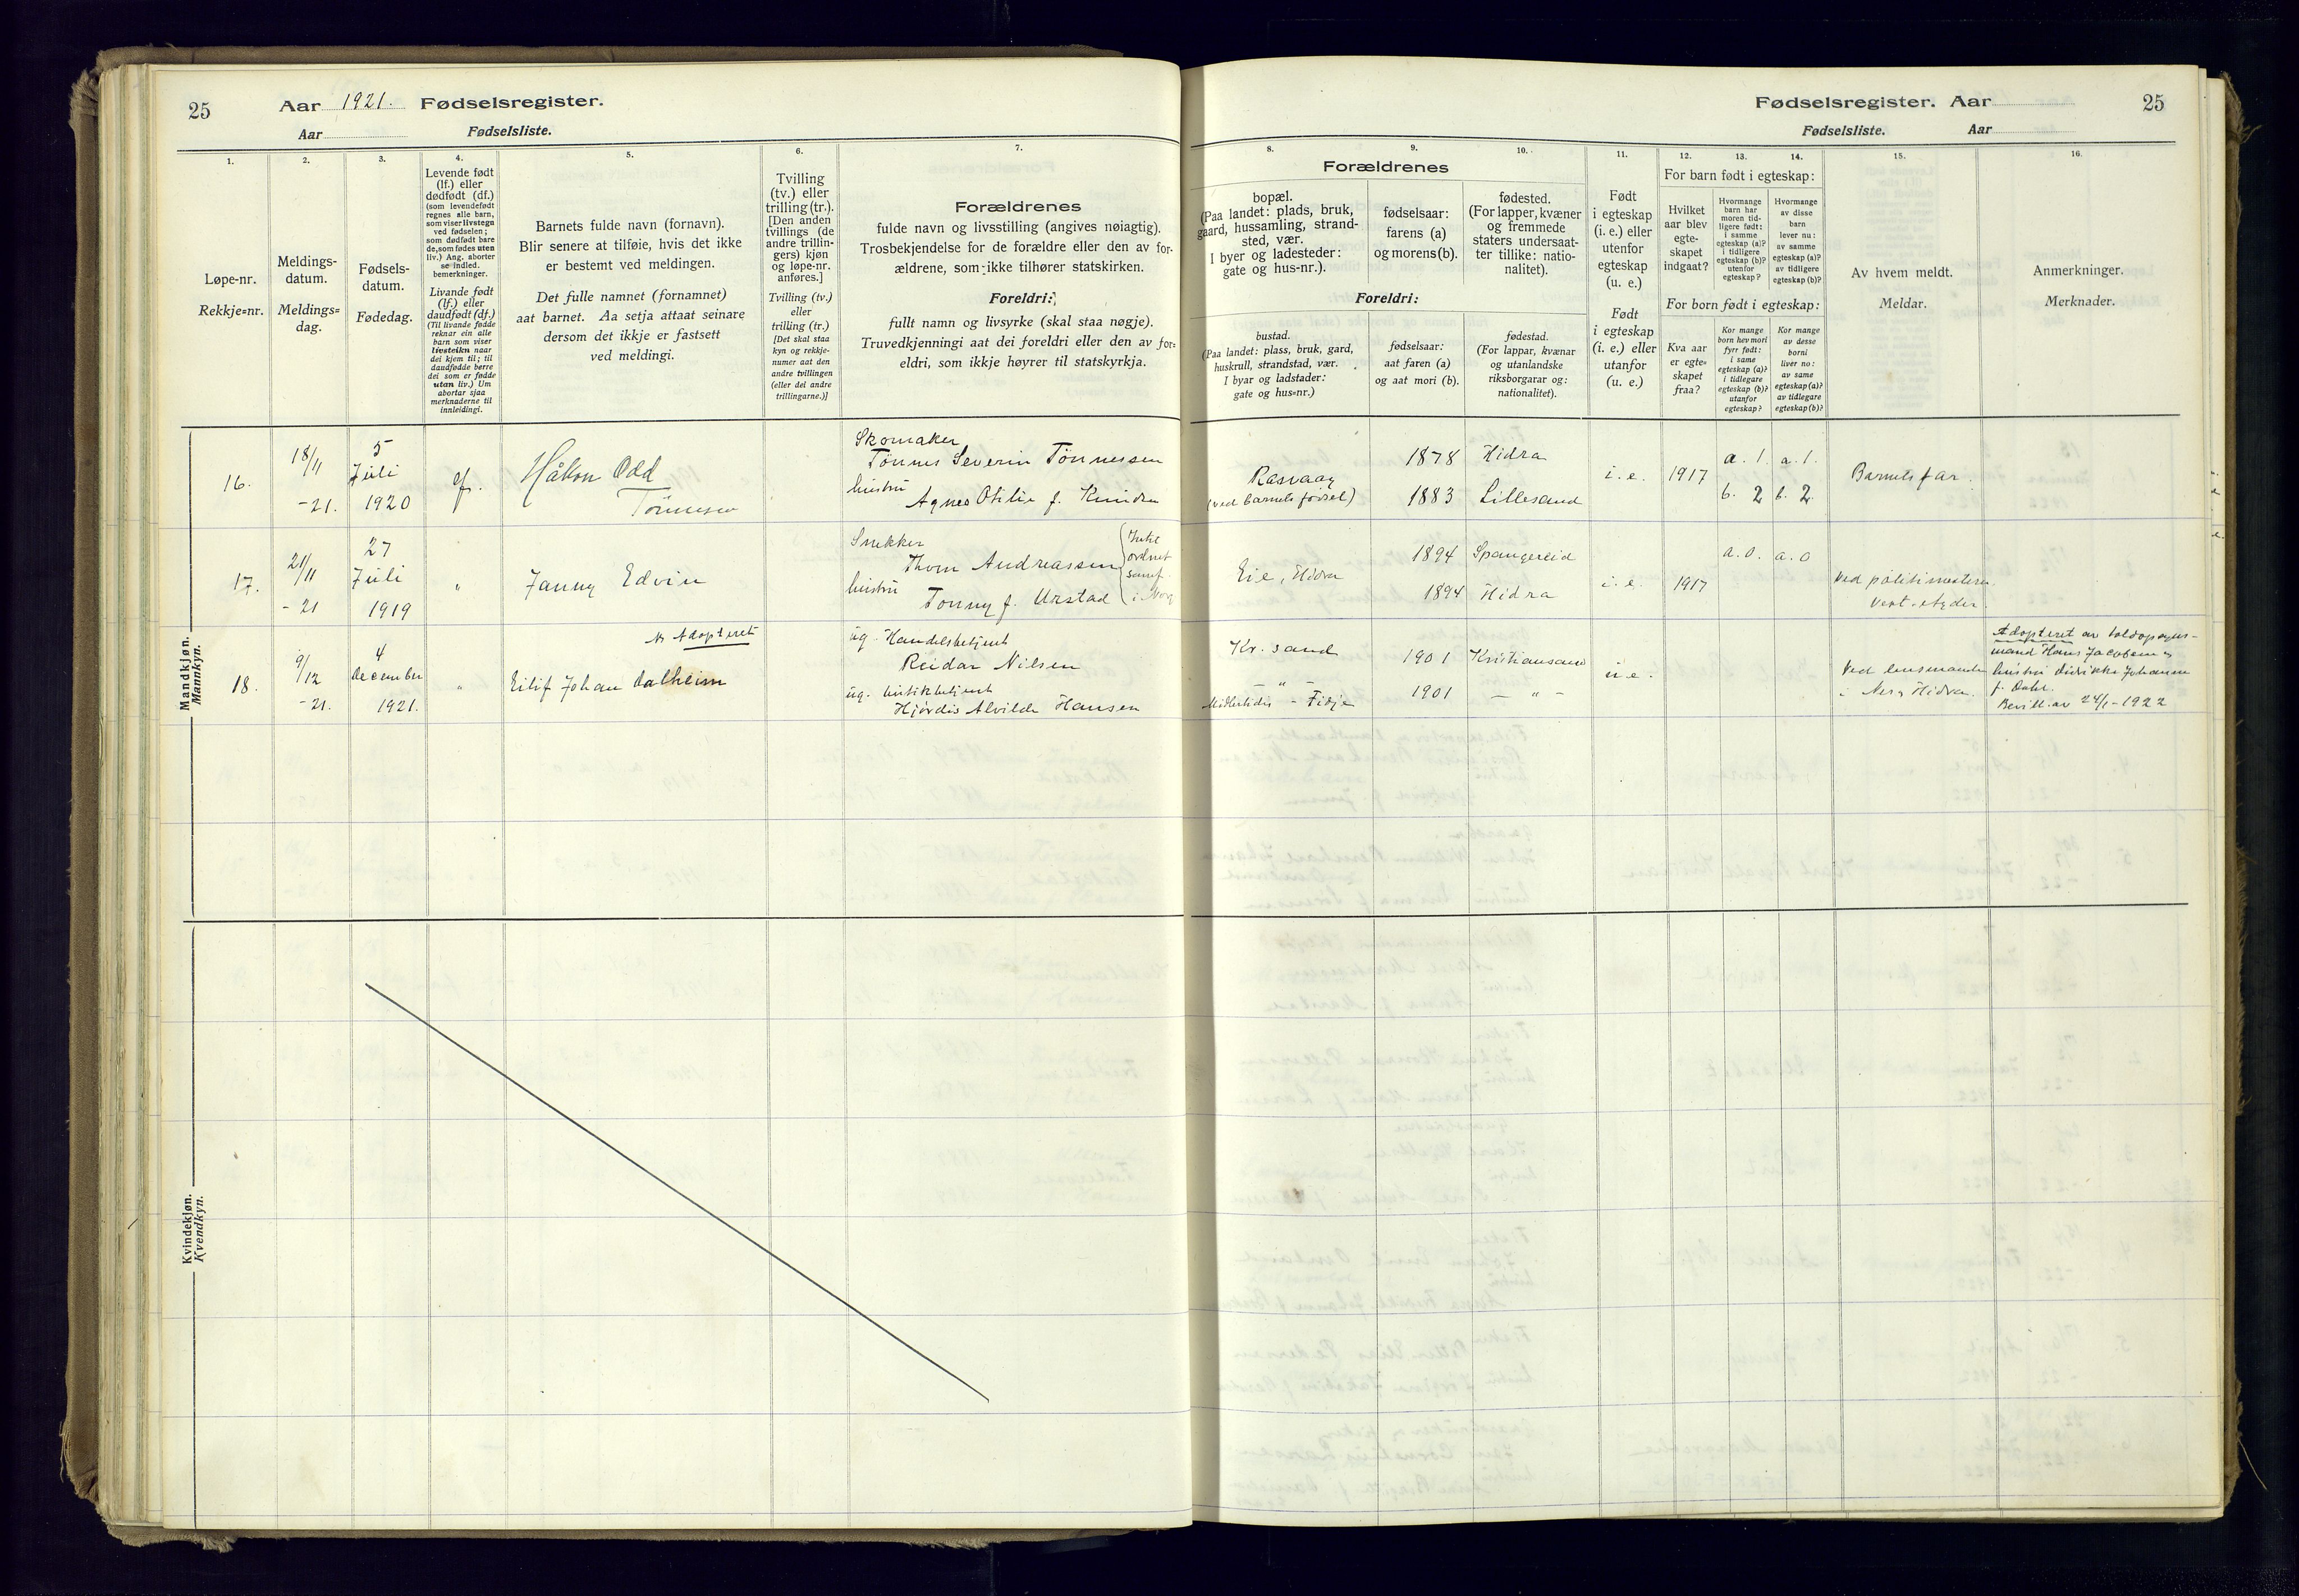 25
Aar 1921. Fødselsregister.
Aar Fødselsliste.
1.
Løpe-nr.
Rekkje=nr.
2.
Meldings-
datum.
Meldings=
dag.
3.
Fødsels-
datum.
Fødedag.
4.
Levende født
(lf.) eller
dødfødt (df.)
(som levendefødt
regnes alle barn,
som viser livstegn
ved fødselen;
som dødfødt bare
de, som fødes uten
liv.) Ang. aborter
se indled.
bemerkninger.
Livande født
(lf.) eller
daudfødt (df.)
(Til livande fødde
reknar ein alle
barn som viser
livsteikn naar
dei kjem til; til
daudfødde berre
dei som er fødde
utan liv.) Um
abortar sjaa
merknaderne til
innleidingi.
5.
Barnets fulde navn (fornavn).
Blir senere at tilføie, hvis det ikke
er bestemt ved meldingen.
Det fulle namnet (fornamnet)
aat barnet. Aa setja attaat seinare
dersom det ikkje er fastsett
ved meldingi.
6.
Tvilling
(tv.) eller
trilling (tr.).
[Den anden
tvillings (de
andre trillin-
gers) kjøn
og løpe-nr.
anføres.]
Tvilling (tv.)
eller
trilling (tr.)
[Det skal staa
kyn og rekkje-
numer aat den
andre tvillingen
(eller dei andre
trillingarne.)]
7.
Forældrenes
fulde navn og livsstilling (angives nøiagtig).
Trosbekjendelse for de forældre eller den av for-
ældrene, som ikke tilhører statskirken.
Foreldri:
fullt namn og livsyrke (skal staa nøgje).
Truvedkjenningi aat dei foreldri eller den av for=
eldri, som ikkje høyrer til statskyrkja.
Mandkjøn.
Mannkyn.
16.
18/11
-21.
5
Juli
1920
lf.
Håkon Odd
Tönnessen
Skomaker
Tönnes Severin Tönnessen
hustru
Agnes Otilie f. Knudsen
17.
21/11
-21
27
Juli
1919
"
Janny Edvin
Snekker
Thom Andreassen
hustru
Tonny f. Urstad
18.
9/12
-21.
4
December
1921.
"
Adopteret
Eilif Johan Dalheim
ug. Handelsbetjent
Reidar Nilsen
ug. butikbetjent
Hjördis Alvilde Hansen
Kvindekjøn.
Kvendkyn.
Fødselsregister. Aar
25
Fødselsliste. Aar
Forældrenes
8.
bopæl.
(Paa landet: plads, bruk,
gaard, hussamling, strand-
sted, vær.
I byer og ladesteder:
gate og hus-nr.).
9.
fødselsaar:
farens (a)
og morens (b).
10.
fødested.
(For lapper, kvæner
og fremmede
staters undersaat-
ter tillike: natio-
nalitet).
Foreldri:
bustad.
(Paa landet: plass, bruk, gard,
huskrull, strandstad, vær.
I byar og ladstader:
gate og hus=nr.)
fødselsaar:
aat faren (a)
og aat mori (b).
fødestad.
(For lappar, kvænar
og utanlandske
riksborgarar og:
nationalitet).
11.
Født
i egteskap
(i. e.) eller
utenfor
egteskap
(u. e.)
Født
i egteskap
(i. e.) eller
utanfor
(u. e.)
For barn født i egteskap:
12.
Hvilket
aar blev
egte-
skapet
indgaat?
13.
Hvormange
barn har
moren tid-
ligere født:
i samme
egteskap (a)?
i tidligere
egteskap (b)?
utenfor
egteskap?
14.
Hvormange
av disse
barn
lever nu:
av samme
egteskap (a)?
av tidligere
egteskap (b)?
For born født i egteskap:
Kva aar
er egte-
skapet
fraa?
Kor mange
born hev mori
fyrr født:
i same
egteskap (a)?
i tidlegare
egteskap (b)?
utanfor
egteskap?
Kor mange
av desse
borni
liver no:
av same
egteskap (a)?
av tidlegare
egteskap (b)?
15.
Av hvem meldt.
Meldar.
16.
Anmerkninger.
Merknader.
Rasvaag
(ved barnets fødsel)
1878
1883
Hidra
Lillesand
i. e.
1917
a. 1. a. 1.
b. 2 b. 2.
Barnets far.
Eie, Hidra
1894
1894
Spangereid
Hidra
i. e.
1917
a. 0. a. 0
Ved politimesteren
Vest-Agder.
Kr. sand
— " —
Midlertidig - Fidje
1901
1901
Kristiansand
— " —
u. e.
Ved lensmanden
i Nes og Hidra.
Adopteret av toldopsyns-
mand Hans Jacobsen og
hustru Didrikke Johanne
f. Dahl.
Bevill. av 24/1-1922